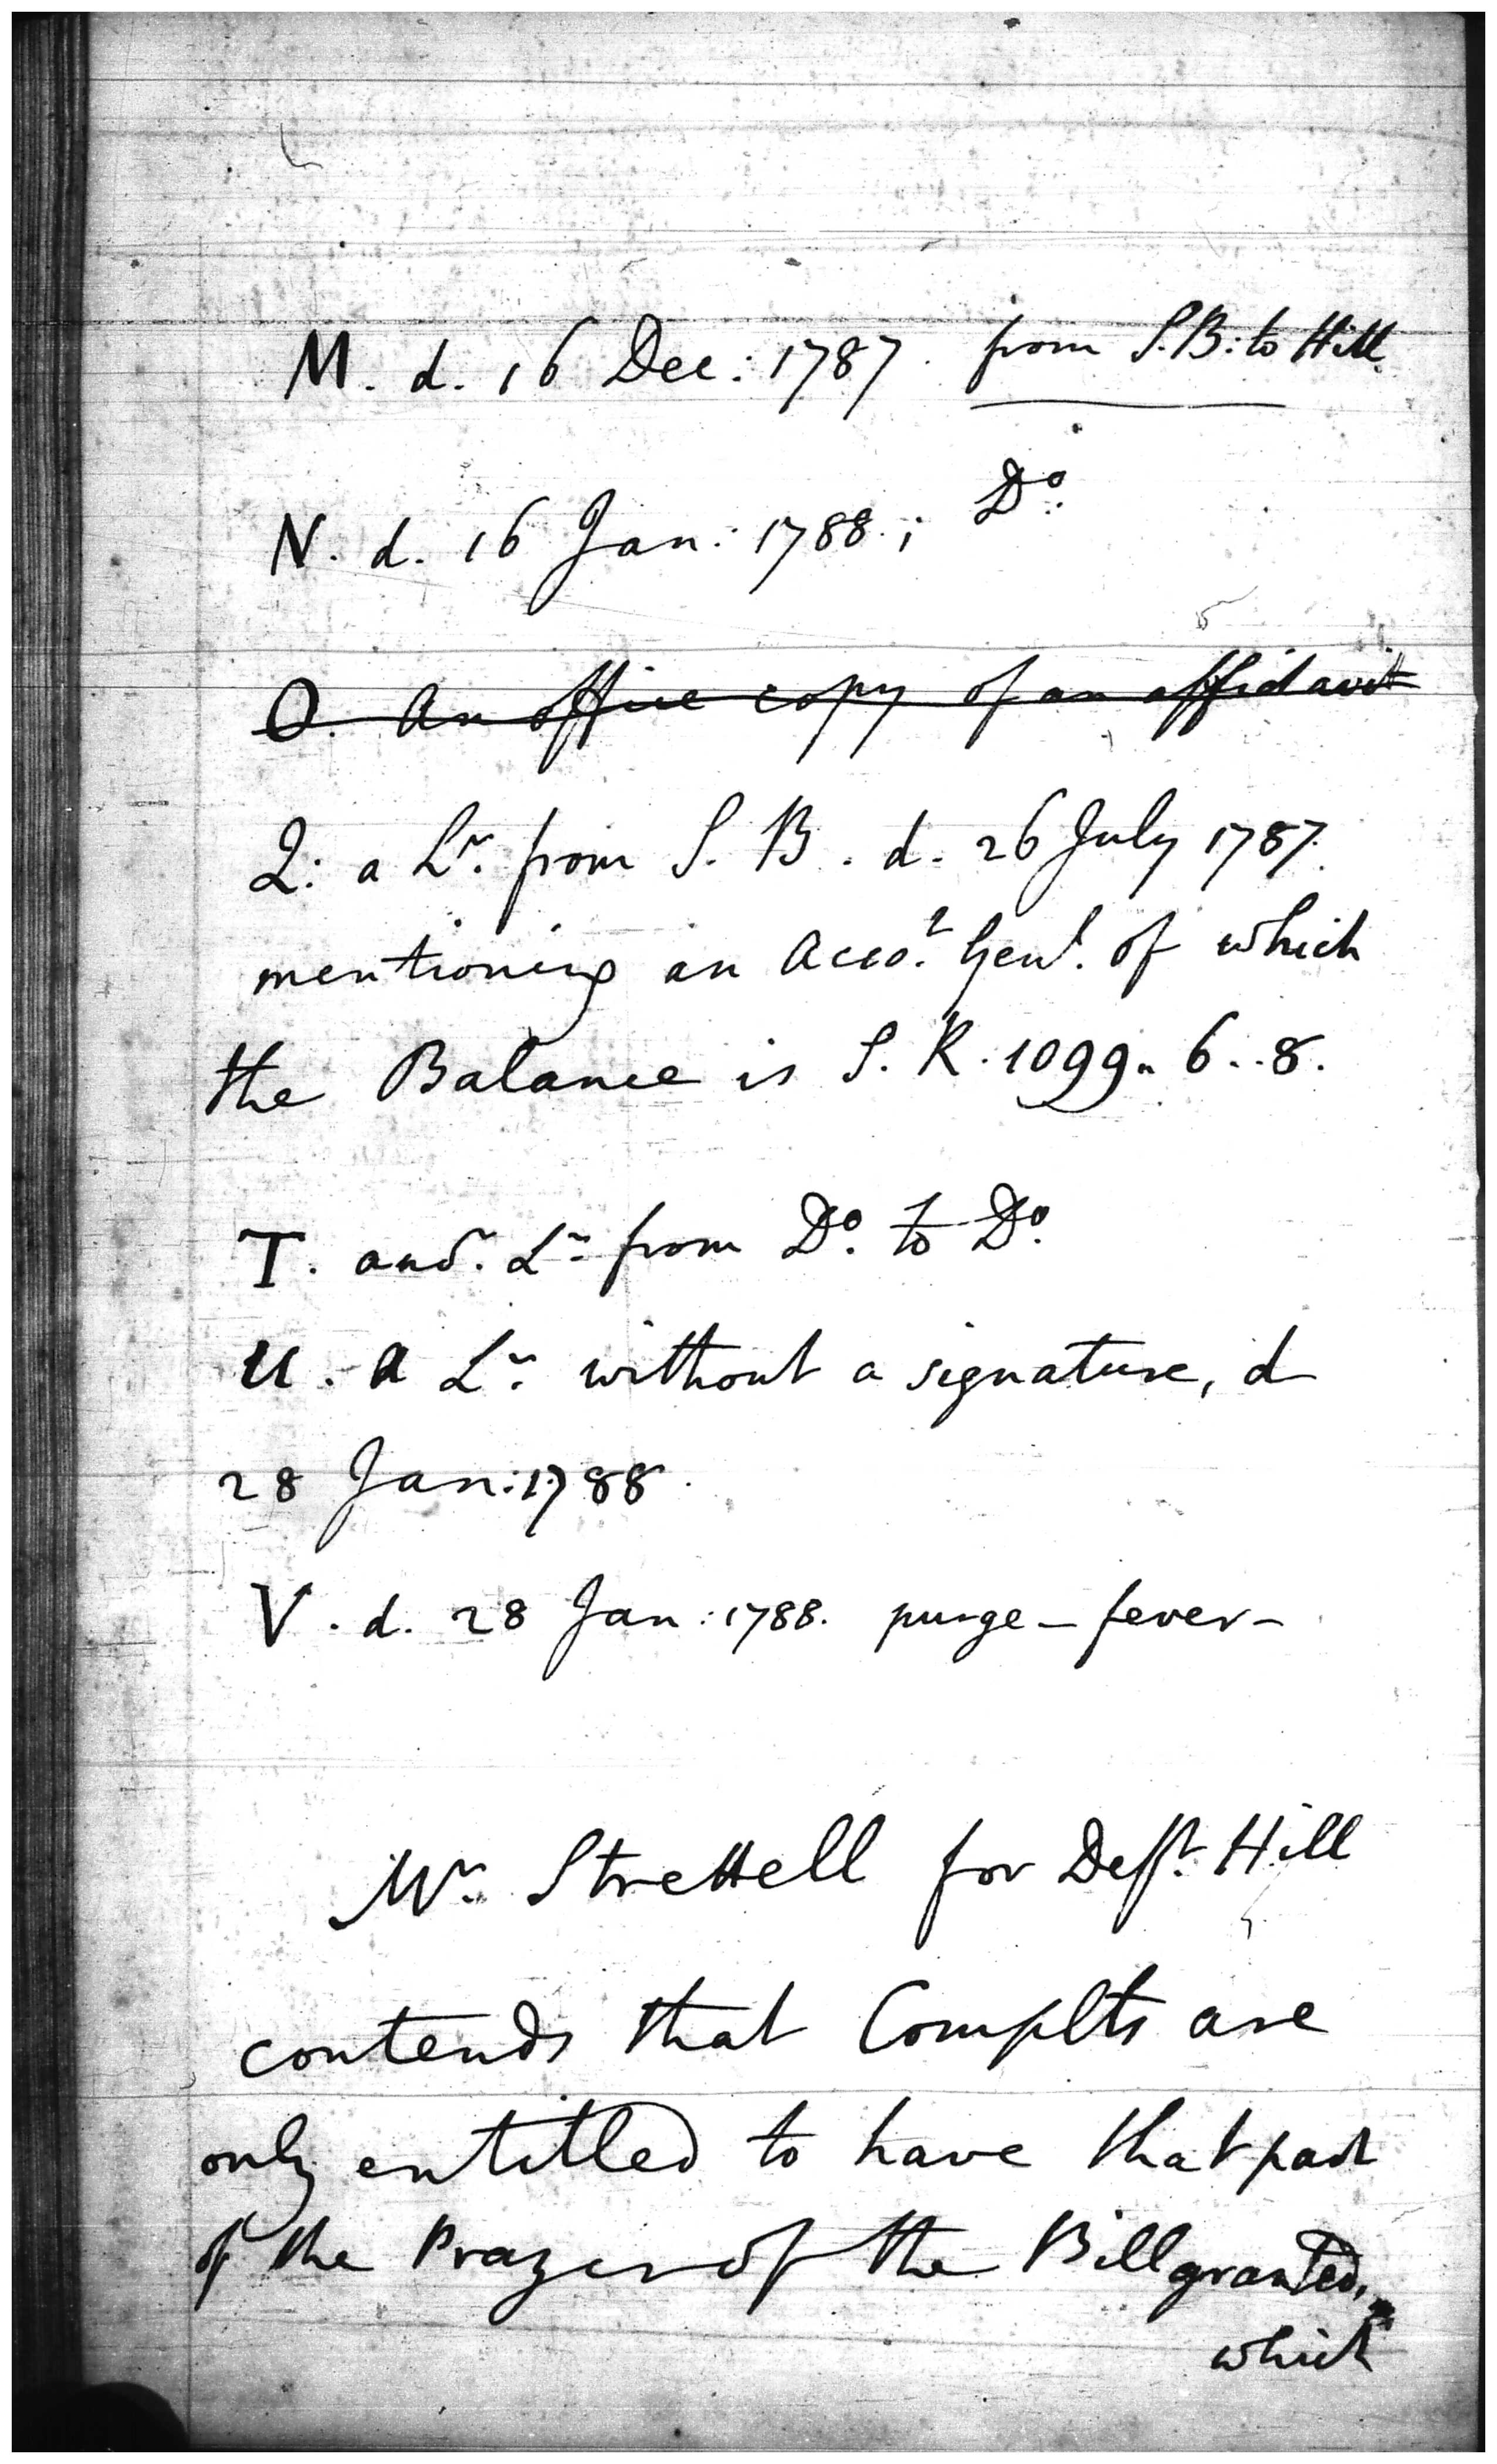 M. d. 16 Dec: 1787. from S.B: to Hill.
N. d. 16 Jan: 1788.; Do.
O. An office copy of an affidavit
Q: a Lr. from S. B. d. 26 July 1787.
mentioning an Acco.t Genl. of which
the Balance is S. R. 1099.. 6..8.
T. anor. Lr. from Do. to Do.
U. a Lr. without a signature, d
28 Jan: 1788.
V. d. 28 Jan: 1788. purge - fever -
Mr. Strettell for Deft. Hill
contends that Complts are
only entitled to have that part
of the Prayer of the Bill granted,
which